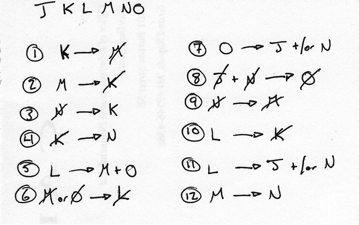 J K L M N O
① K → M̸
② M → K̸
③ N̸ → K
④ K̸ → N
⑤ L → M + O
⑥ M̸ or O̸ → L̸
⑦ O → J +/or N
⑧ J̸ + N̸ → O̸
⑨ N̸ → M̸
⑩ L → K̸
⑪ L → J +/or N
⑫ M → N